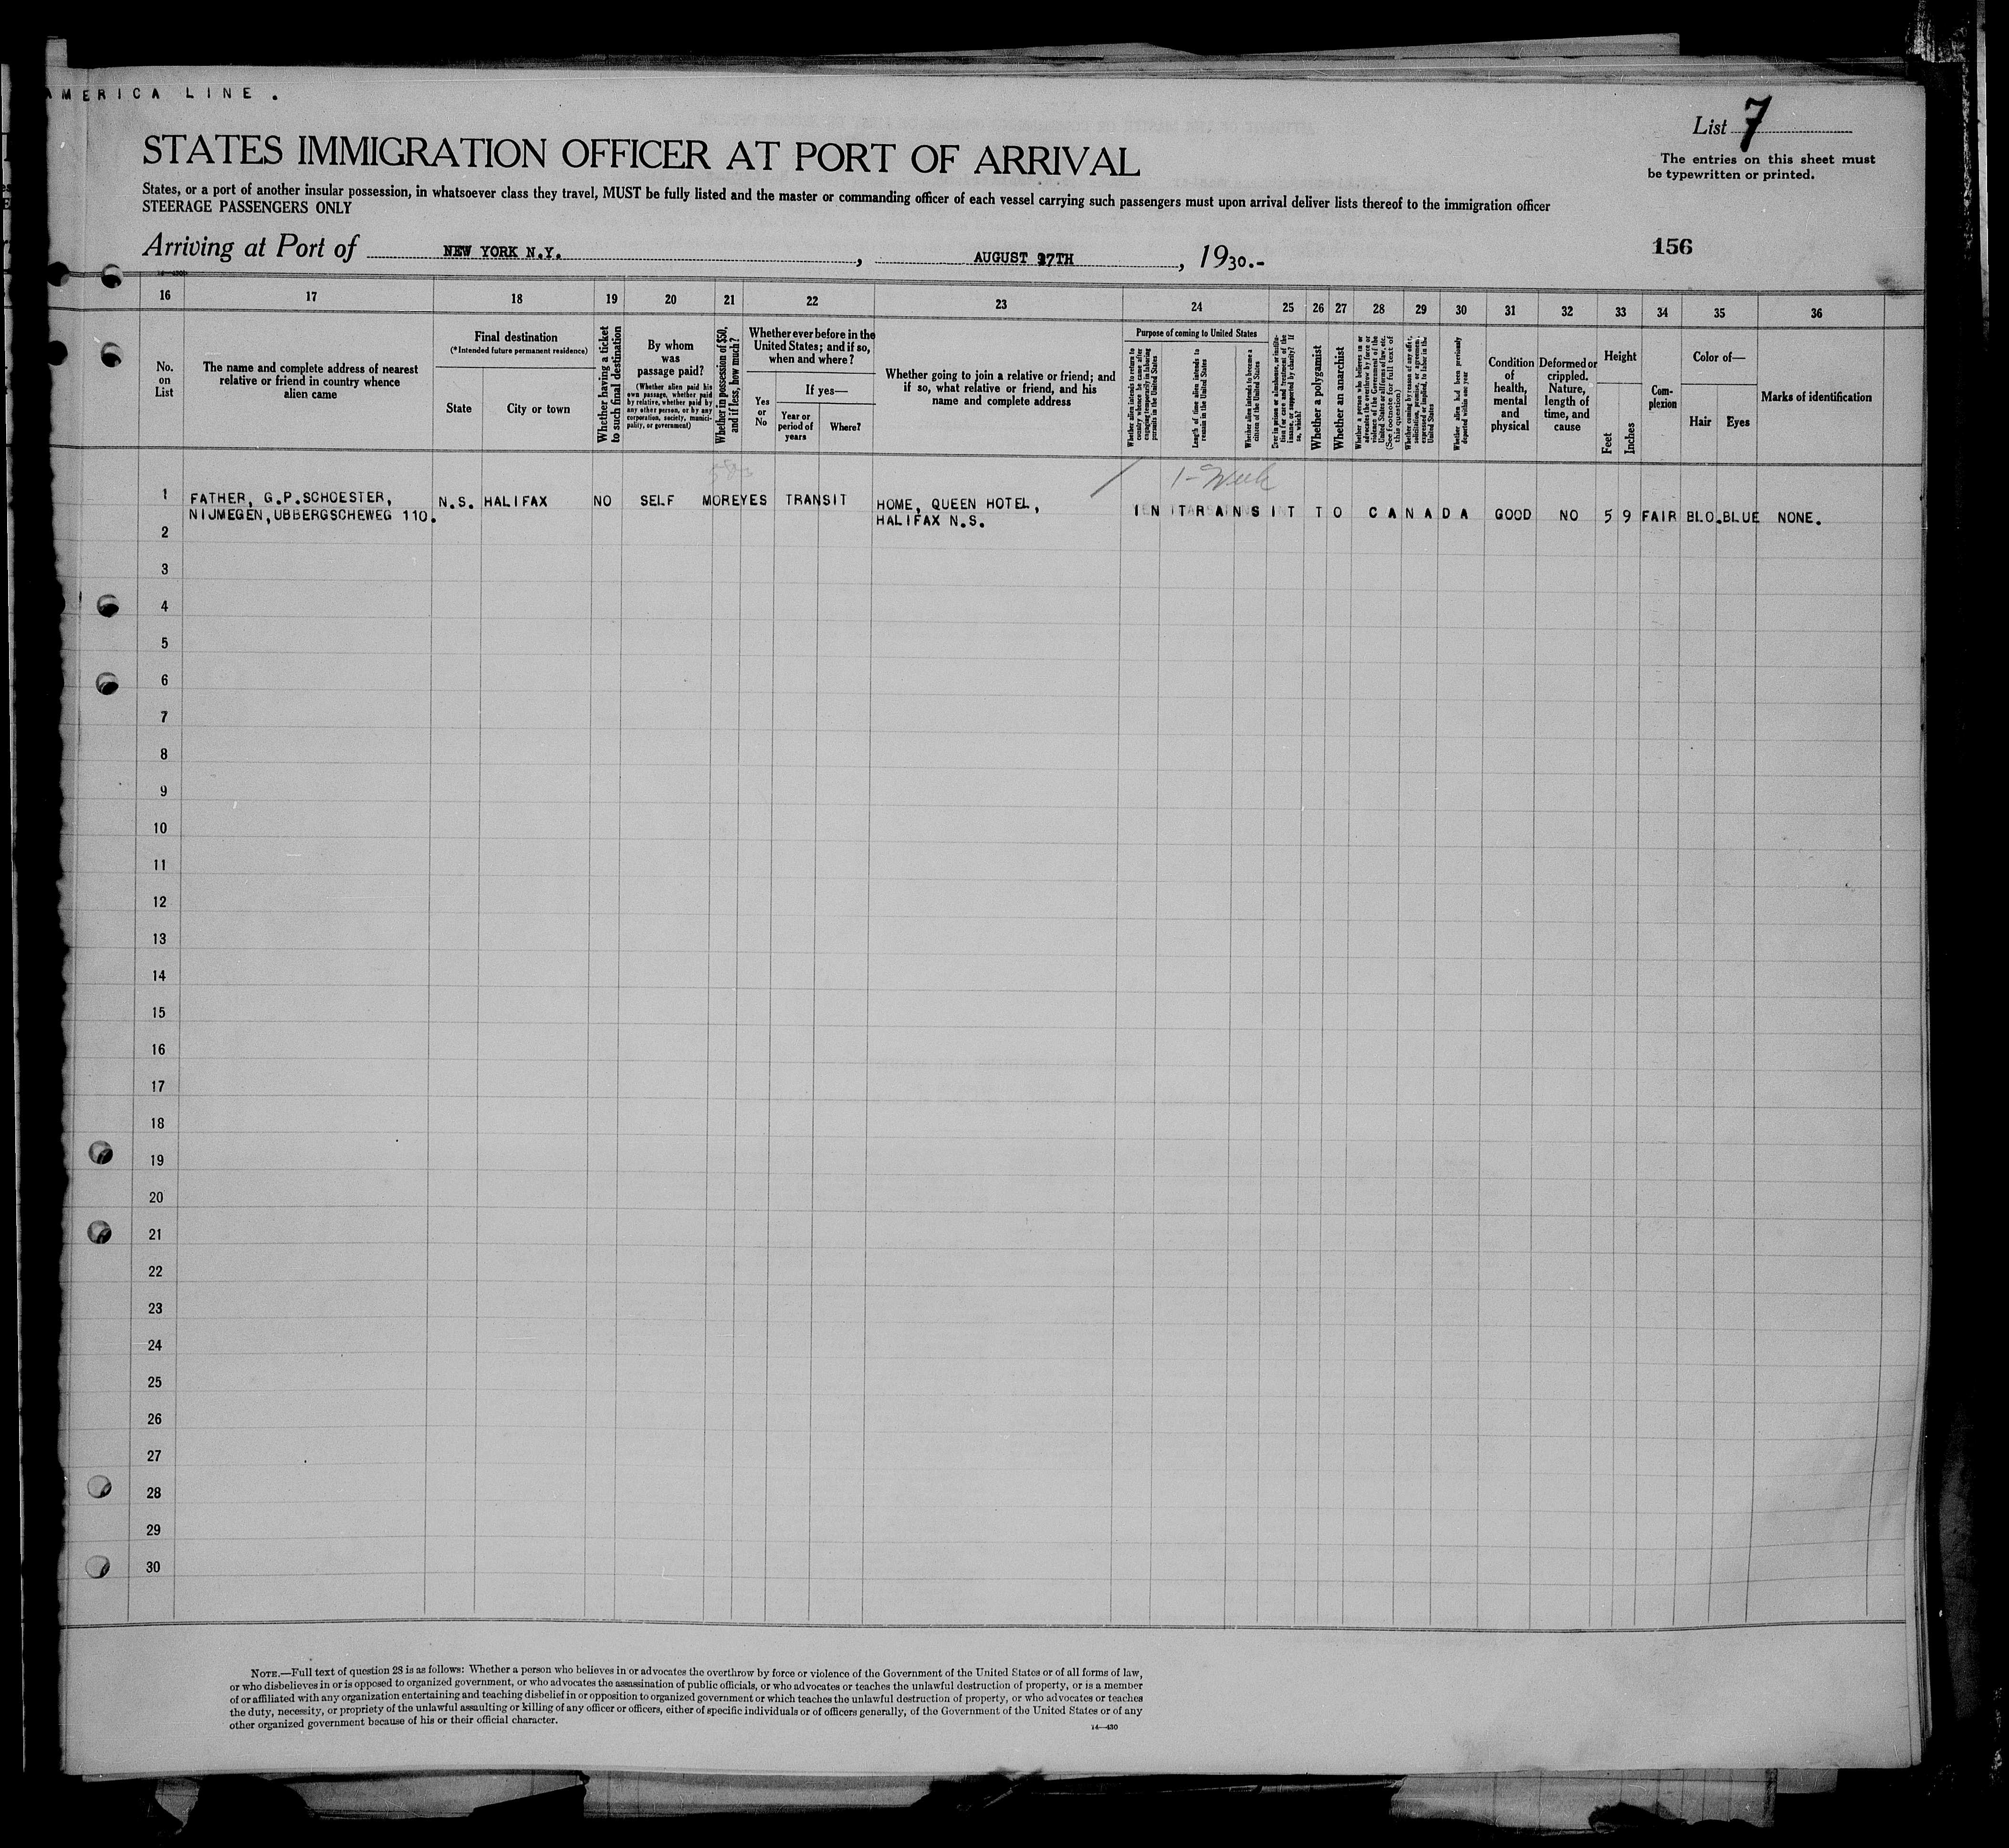 AMERICA LINE.
List 7
The entries on this sheet must
be typewritten or printed.
STATES IMMIGRATION OFFICER AT PORT OF ARRIVAL
States, or a port of another insular possession, in whatsoever class they travel, MUST be fully listed and the master or commanding officer of each vessel carrying such passengers must upon arrival deliver lists thereof to the immigration officer
STEERAGE PASSENGERS ONLY
Arriving at Port of NEW YORK N.Y. , AUGUST 27TH , 1930.-
156
16 17 18 19 20 21 22 23 24 25 26 27 28 29 30 31 32 33 34 35 36
No.
on
List
The name and complete address of nearest
relative or friend in country whence
alien came
Final destination
(*Intended future permanent residence)
State
City or town
Whether having a ticket
to such final destination
By whom
was
passage paid?
(Whether alien paid his
own passage, whether paid
by relative, whether paid by
any other person, or by any
corporation, society, munici-
pality, or government)
Whether in possession of $50,
and if less, how much?
Whether ever before in the
United States; and if so,
when and where?
Yes
or
No
If yes—
Year or
period of
years
Where?
Whether going to join a relative or friend; and
if so, what relative or friend, and his
name and complete address
Purpose of coming to United States
Whether alien intends to return to
country whence he came after
engaging temporarily in laboring
pursuits in the United States
Length of time alien intends to
remain in the United States
Whether alien intends to become a
citizen of the United States
Ever in prison or almshouse, or institu-
tion for care and treatment of the
insane, or supported by charity? If
so, which?
Whether a polygamist
Whether an anarchist
Whether a person who believes in or
advocates the overthrow by force or
violence of the Government of the
United States or all forms of law, etc.
(See footnote for full text of
this question)
Whether coming by reason of any offer,
solicitation, promise, or agreement,
expressed or implied, to labor in the
United States
Whether alien had been previously
deported within one year
Condition
of
health,
mental
and
physical
Deformed or
crippled.
Nature,
length of
time, and
cause
Height
Feet
Inches
Com-
plexion
Color of—
Hair
Eyes
Marks of identification
1-Week
1 FATHER, G.P.SCHOESTER, N.S. HALIFAX NO SELF MORE YES TRANSIT HOME, QUEEN HOTEL, IN TRANSIT TO CANADA GOOD NO 5 9 FAIR BLO. BLUE NONE.
NIJMEGEN, UBBERGSCHEWEG 110. HALIFAX N.S.
2
3
4
5
6
7
8
9
10
11
12
13
14
15
16
17
18
19
20
21
22
23
24
25
26
27
28
29
30
NOTE.—Full text of question 28 is as follows: Whether a person who believes in or advocates the overthrow by force or violence of the Government of the United States or of all forms of law,
or who disbelieves in or is opposed to organized government, or who advocates the assassination of public officials, or who advocates or teaches the unlawful destruction of property, or is a member
of or affiliated with any organization entertaining and teaching disbelief in or opposition to organized government or which teaches the unlawful destruction of property, or who advocates or teaches
the duty, necessity, or propriety of the unlawful assaulting or killing of any officer or officers, either of specific individuals or of officers generally, of the Government of the United States or of any
other organized government because of his or their official character.
14—430